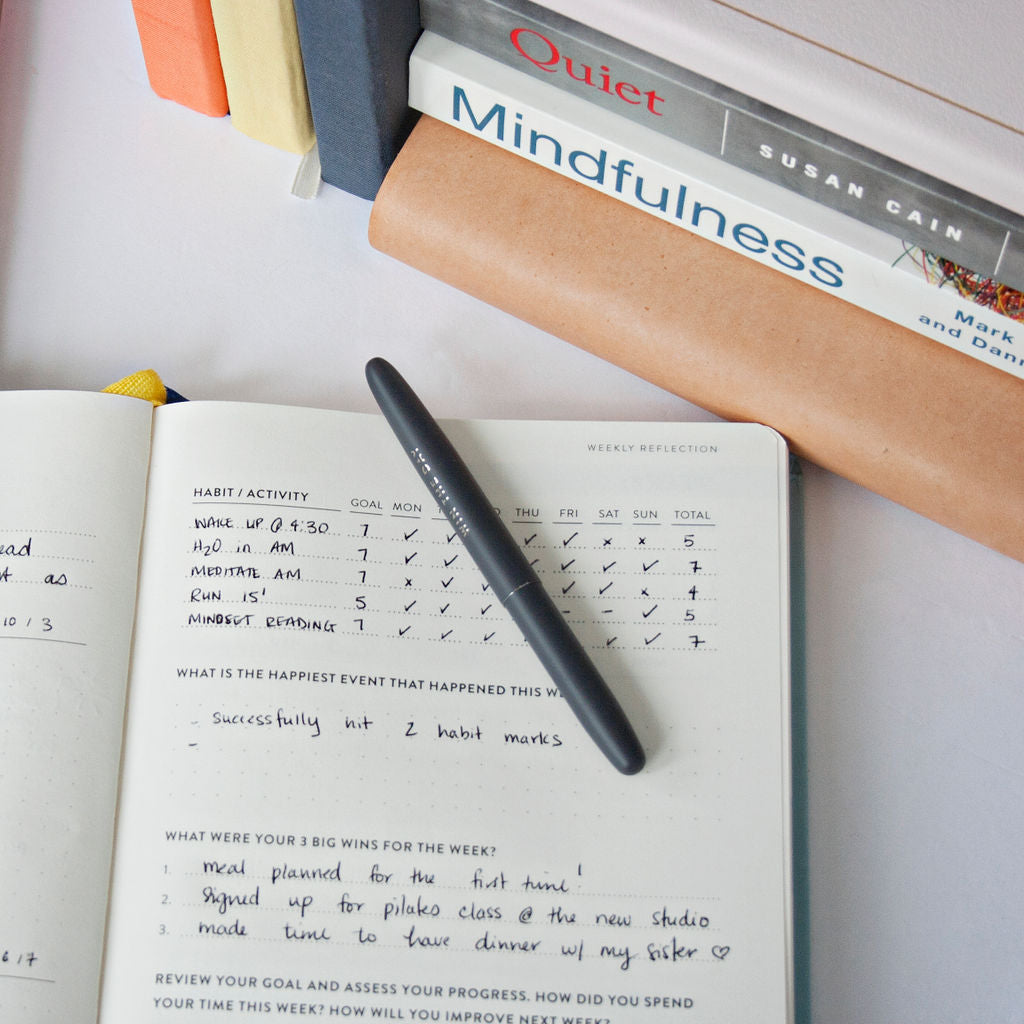 Quiet
SUSAN CAIN
Mindfulness
Mark
and Dann
WIN THE DAY
WEEKLY REFLECTION
HABIT / ACTIVITY GOAL MON THU FRI SAT SUN TOTAL
WAKE UP @ 4:30 7 ✓ ✓ ✓ ✓ x x 5
H2O in AM 7 ✓ ✓ ✓ ✓ ✓ ✓ 7
MEDITATE AM 7 x ✓ ✓ ✓ ✓ x 4
RUN 15' 5 ✓ ✓ ✓ – – ✓ 5
MINDSET READING 7 ✓ ✓ ✓ ✓ ✓ 7
WHAT IS THE HAPPIEST EVENT THAT HAPPENED THIS WE
- successfully hit 2 habit marks
-
WHAT WERE YOUR 3 BIG WINS FOR THE WEEK?
1. meal planned for the first time!
2. signed up for pilates class @ the new studio
3. made time to have dinner w/ my sister ♡
REVIEW YOUR GOAL AND ASSESS YOUR PROGRESS. HOW DID YOU SPEND
YOUR TIME THIS WEEK? HOW WILL YOU IMPROVE NEXT WEEK?
ead
as
10 / 3
6 / 7